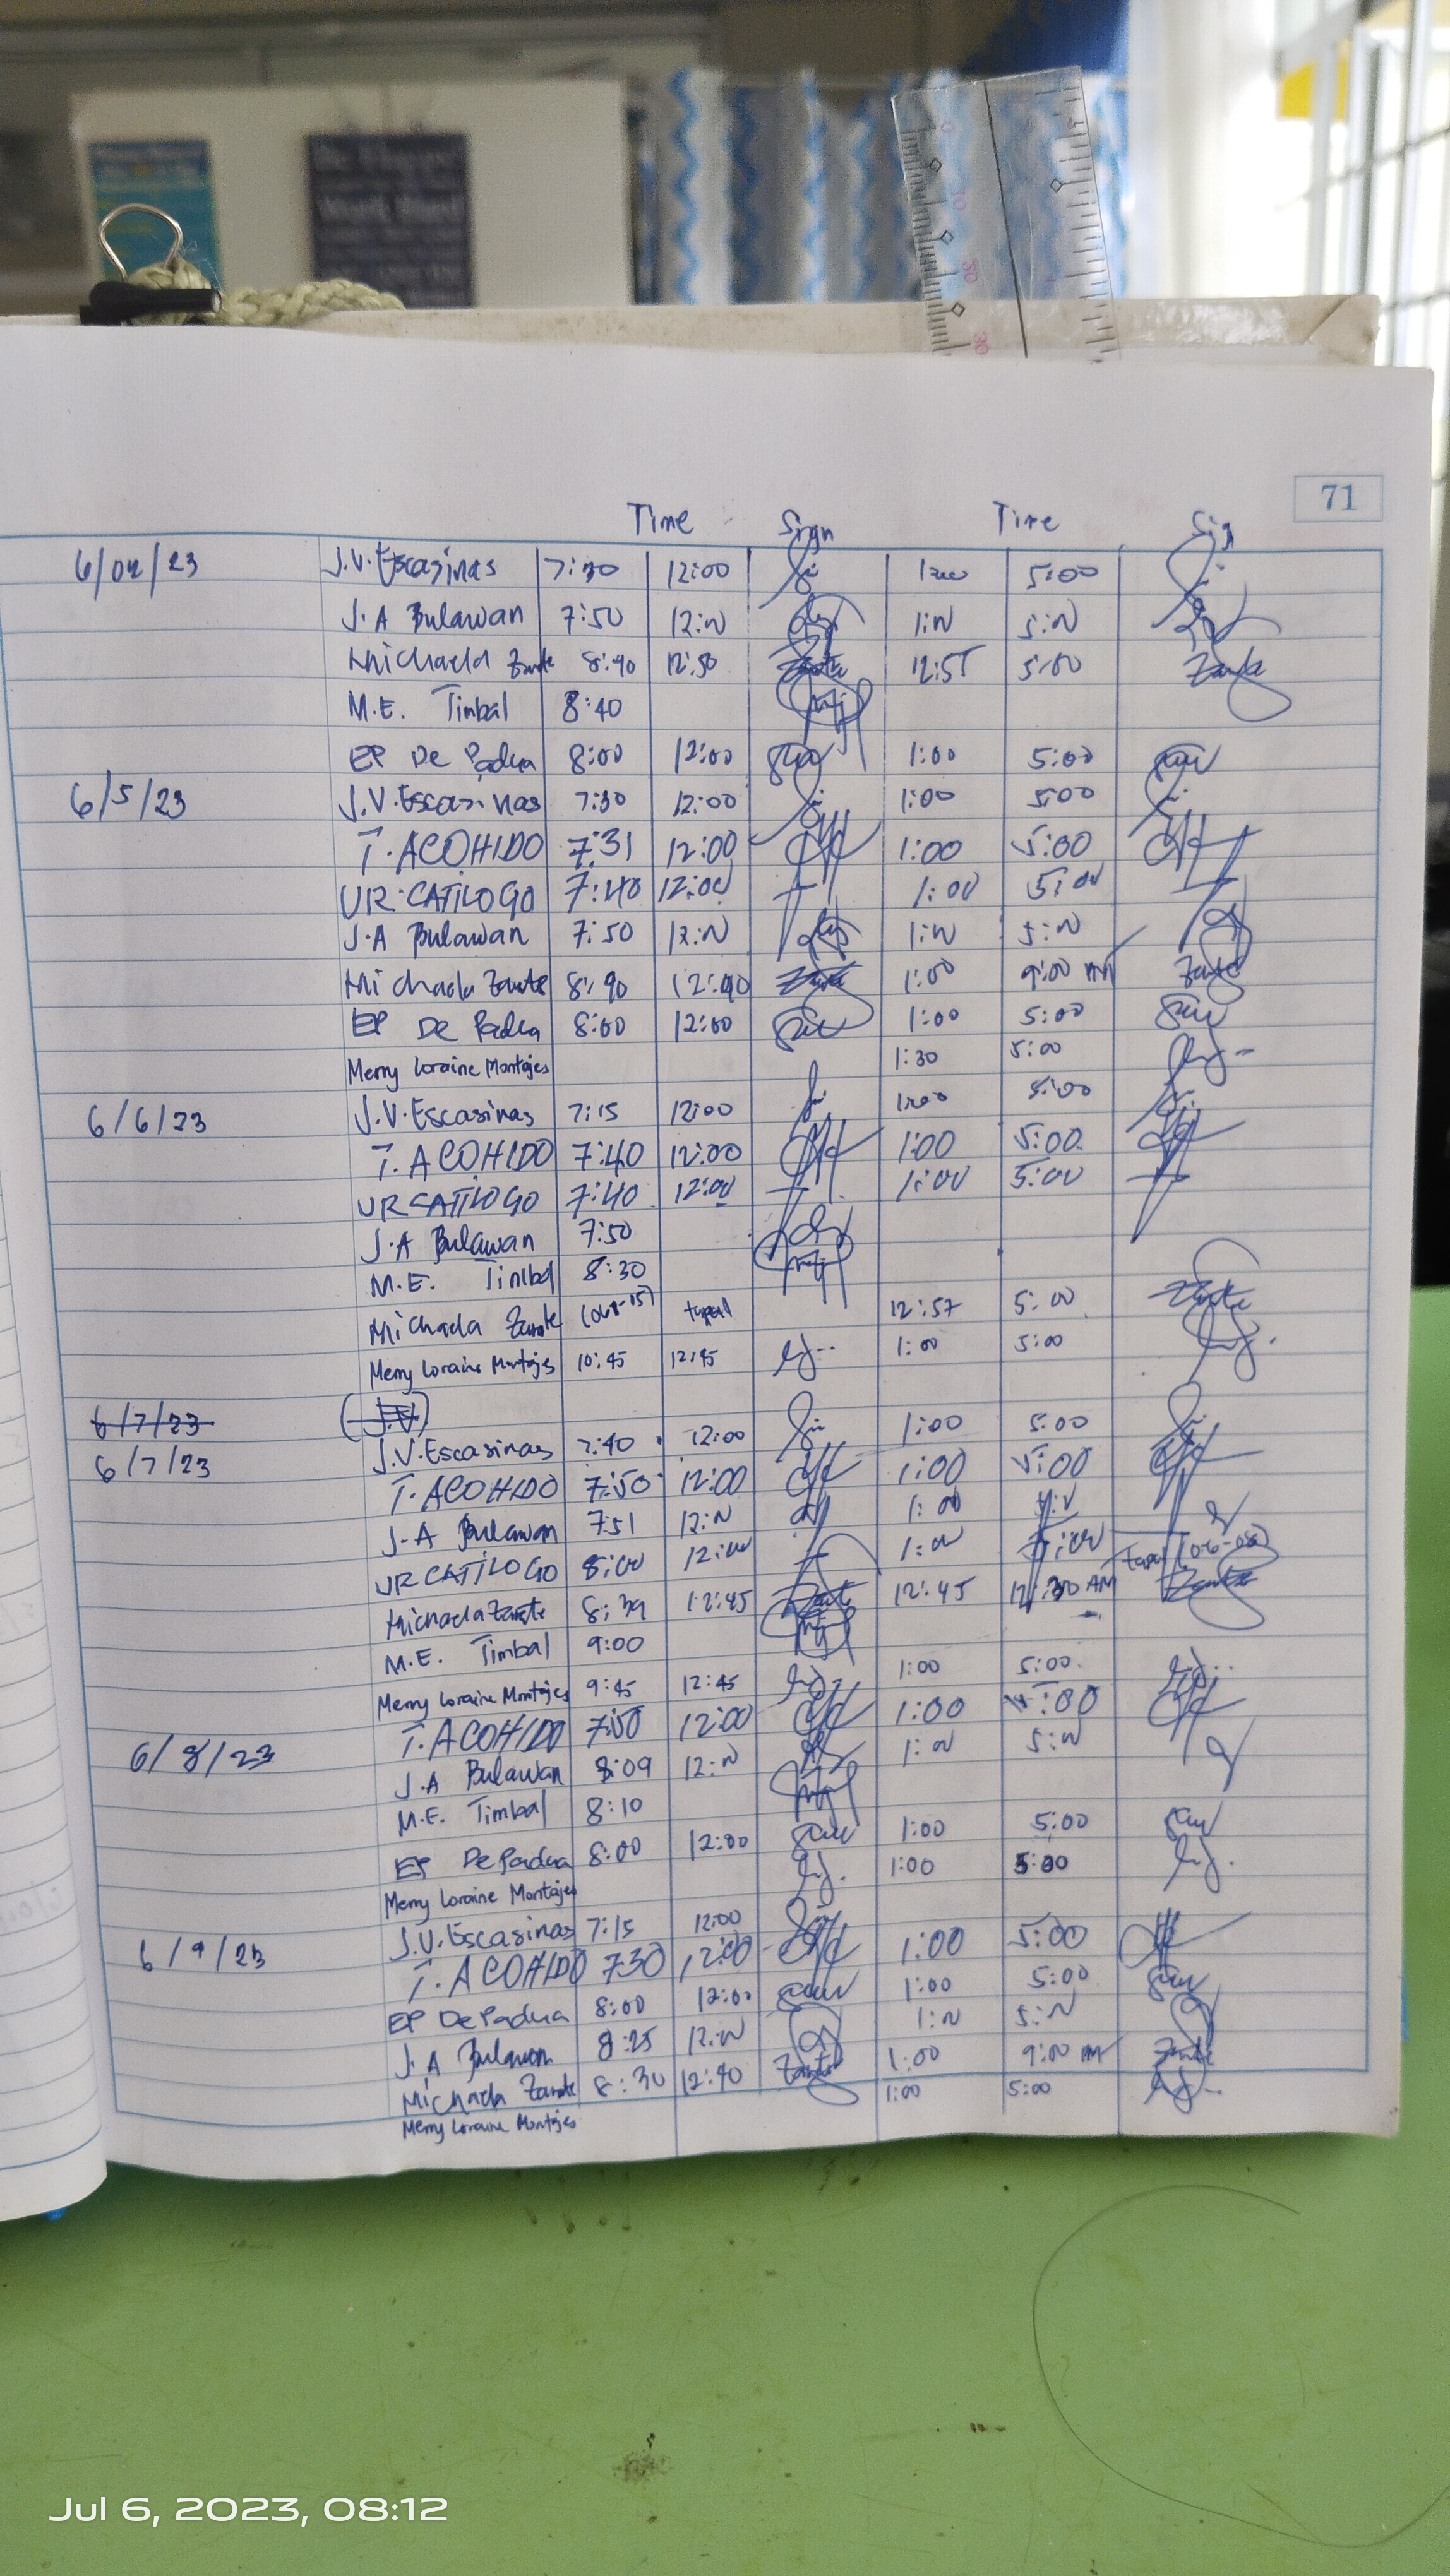 71
Time Sign Time Sig
6/02/23 J.V. Escasinas 7:30 12:00 1:00 5:00
J.A Bulawan 7:50 12:N 1:N 5:N
Michaela Zarate 8:40 12:50 Zarate 12:55 5:00 Zarate
M.E. Timbal 8:40
EP De Padua 8:00 12:00 1:00 5:00
6/5/23 J.V. Escasinas 7:30 12:00 1:00 5:00
T. ACOHIDO 7:31 12:00 1:00 5:00
UR CATILOGO 7:40 12:00 1:00 5:00
J.A Bulawan 7:50 12:N 1:N 5:N
Michaela Zarate 8:40 12:40 Zarate 1:00 9:00 Zarate
EP De Padua 8:00 12:00 1:00 5:00
Merry Loraine Montajes 1:30 5:00
6/6/23 J.V. Escasinas 7:15 12:00 1:00 5:00
T. ACOHIDO 7:40 12:00 1:00 5:00
UR CATILOGO 7:40 12:00 1:00 5:00
J.A Bulawan 7:50
M.E. Timbal 8:30
Michaela Zarate 12:57 5:00 Zarate
Merry Loraine Montajes 10:45 12:45 1:00 5:00
6/7/23 (J.V)
6/7/23 J.V. Escasinas 7:40 12:00 1:00 5:00
T. ACOHIDO 7:50 12:00 1:00 5:00
J.A Bulawan 7:51 12:N 1:00
UR CATILOGO 8:00 12:00 1:00 5:00
Michaela Zarate 8:39 12:45 Zarate 12:45 12:30 AM Zarate
M.E. Timbal 9:00
Merry Loraine Montajes 9:45 12:45 1:00 5:00
T. ACOHIDO 7:50 12:00 1:00 5:00
6/8/23 J.A Bulawan 8:09 12:N 1:N 5:N
M.E. Timbal 8:10
EP De Padua 8:00 12:00 1:00 5:00
Merry Loraine Montajes 1:00 5:00
J.V. Escasinas 7:15 12:00
6/9/23 T. ACOHIDO 730 12:00 1:00 5:00
EP De Padua 8:00 12:00 1:00 5:00
J.A Bulawan 8:25 12:N 1:N 5:N
Michaela Zarate 8:30 12:40 Zarate 1:00 9:00 Zarate
Merry Loraine Montajes 1:00 5:00
Jul 6, 2023, 08:12